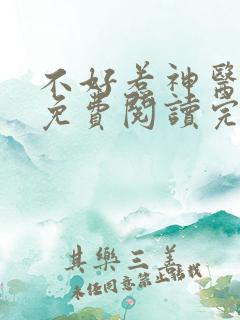 不好惹神醫
免費閱讀完
其樂三羔
未任同意禁止轉載